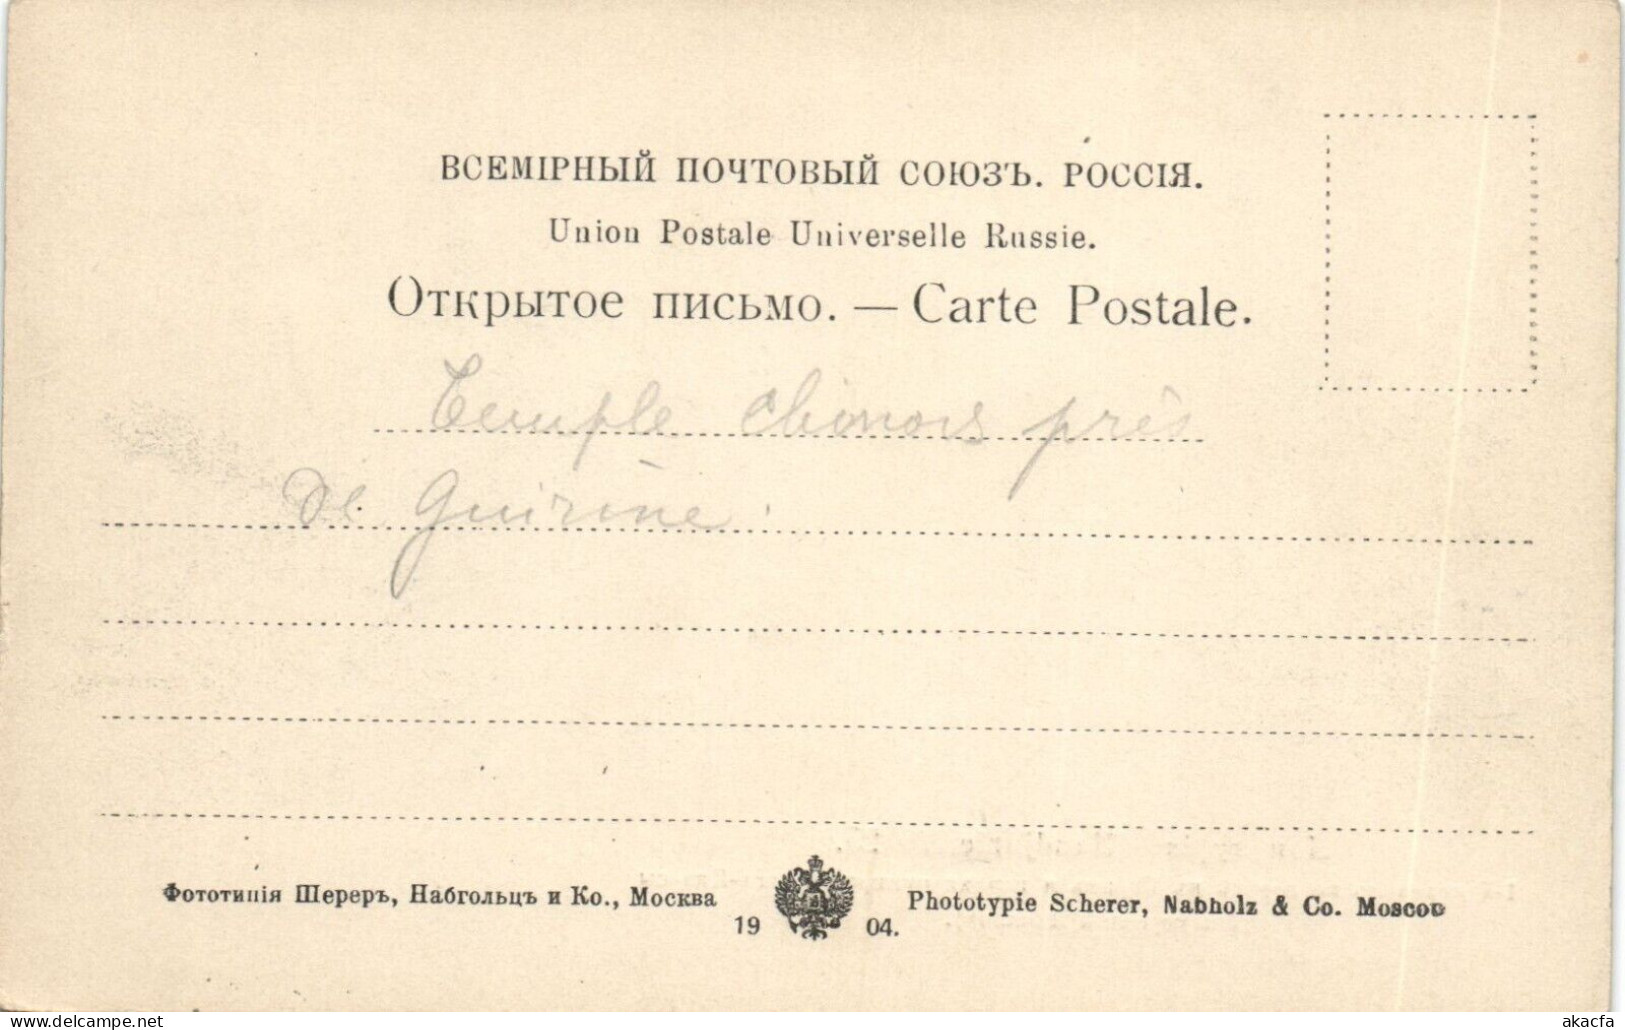 ВСЕМІРНЫЙ ПОЧТОВЫЙ СОЮЗЪ. РОССІЯ.
Union Postale Universelle Russie.
Открытое письмо. — Carte Postale.
Temple chinois près
de Guirine.
Фототипія Шереръ, Набгольцъ и Ко., Москва
1904.
Phototypie Scherer, Nabholz & Co. Moscou
akacfa